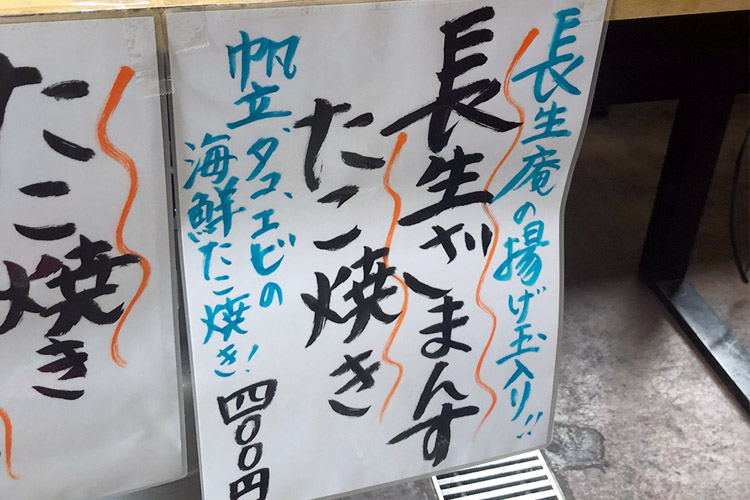 長生庵の揚げ玉入り!!
長生ざまんす
たこ焼き
帆立、ダコ、エビの
海鮮たこ焼き!
四〇〇円
たこ焼き